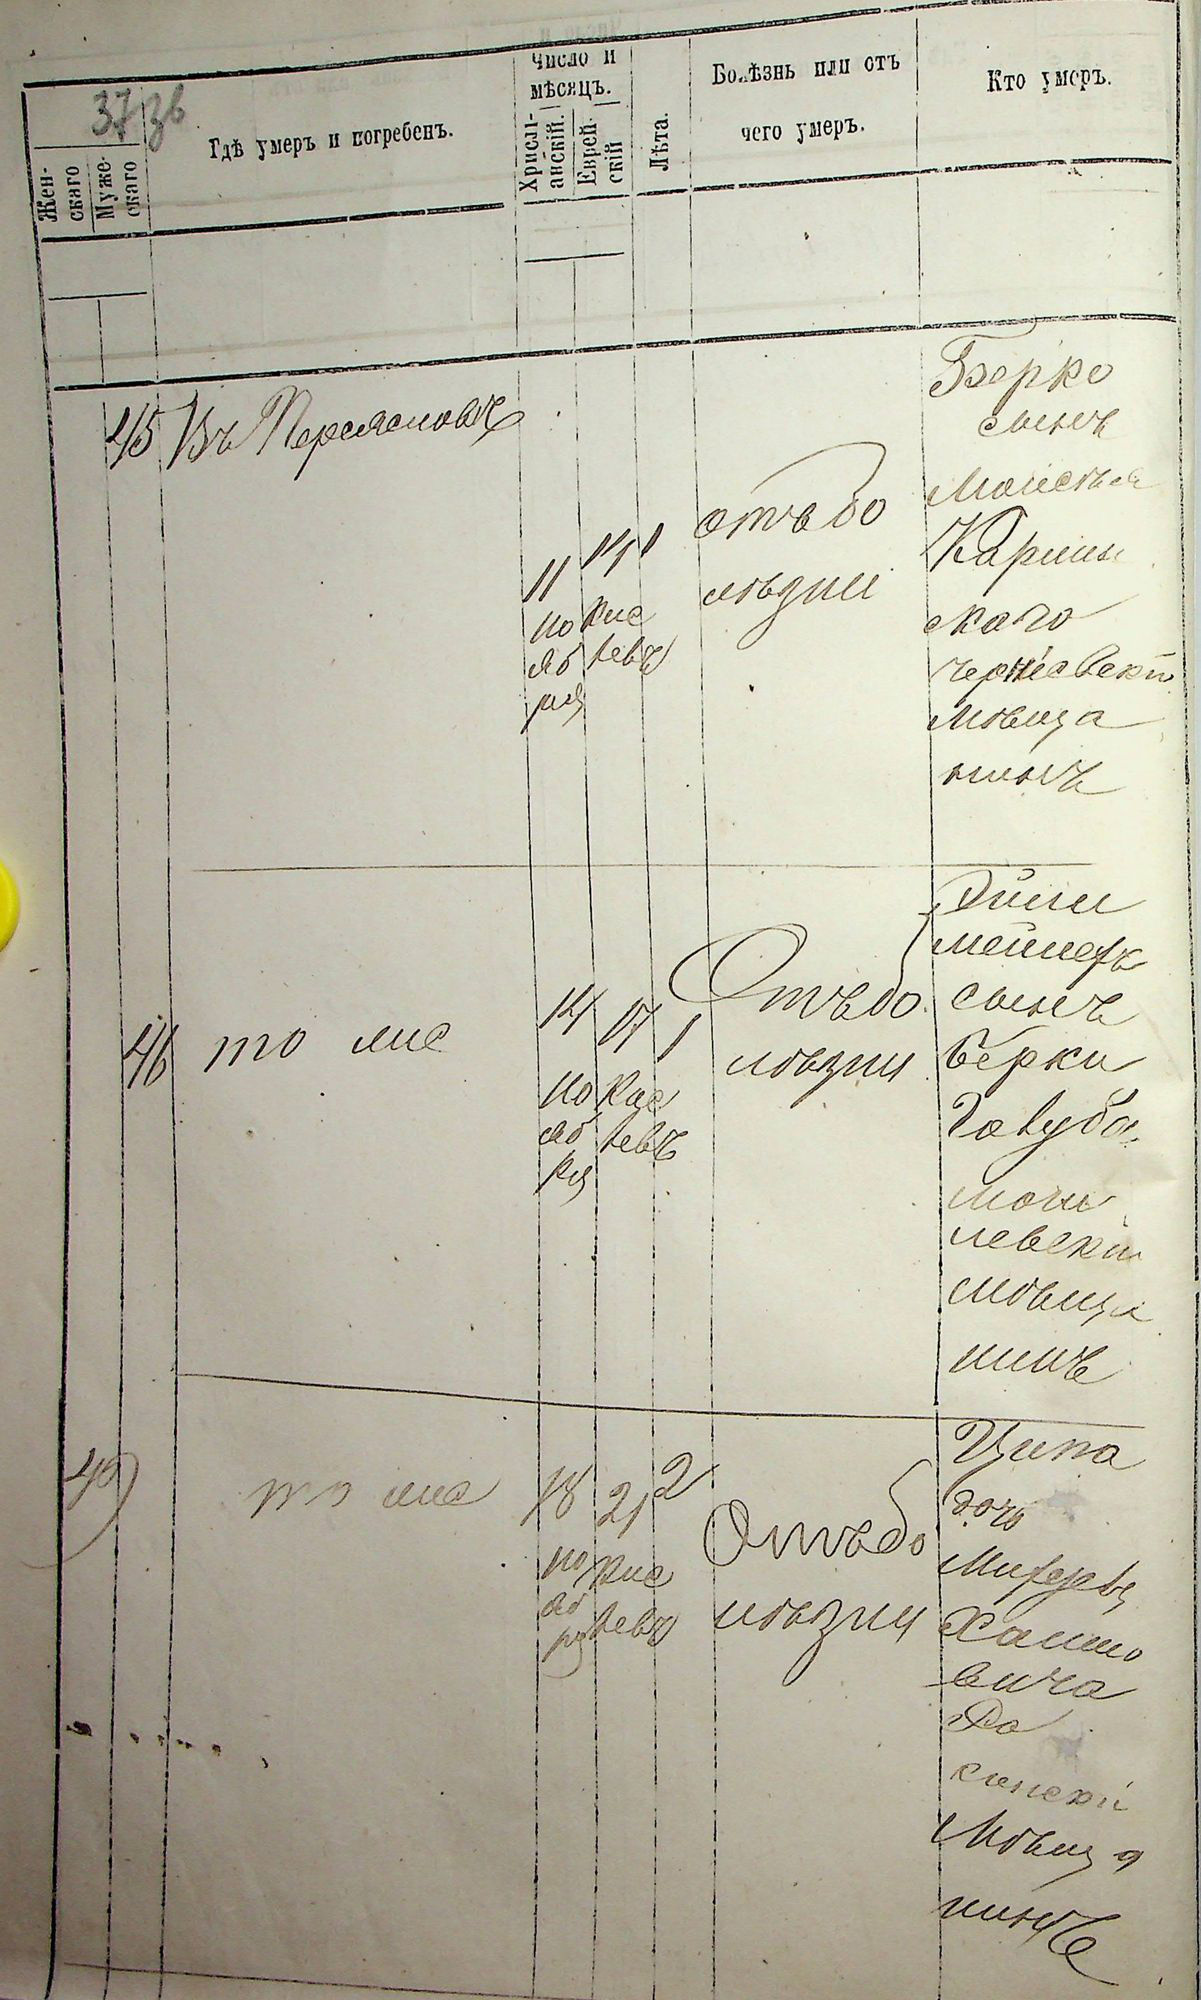 37 зв
Жен-
скаго
Муже-
скаго
Гдѣ умеръ и погребенъ.
Число и
мѣсяцъ.
Христі-
анскій.
Еврей-
скій
Лѣта.
Болѣзнь или отъ
чего умеръ.
Кто умеръ.
45 Въ Переяславѣ
11
но
яб
ря
14
кис
левъ
1
отъ бо
лѣзни
Берко
сынъ
Мойсея
Карпин
скаго
мѣща
нинъ
46 то же
14
но
яб
ря
17
кис
левъ
1
Отъ бо
лѣзни
сынъ
Берки
Голуба
моги
левскій
мѣща
нинъ
то же
18
но
яб
ря
21
кис
левъ
2
Отъ бо
лѣзни
Ципа
дочь
Хаимо
вича
мѣща
нинъ